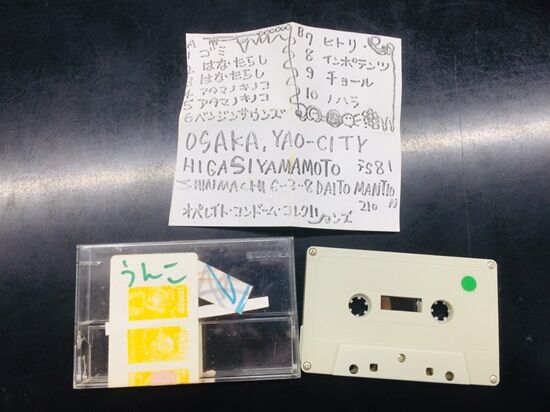 A
1 ゴミ
2 はなたらし
3 はなたらし
4 アタマノキノコ
5 アタマノキノコ
6 ベンジンサウンズ
B7 ヒトリ
8 インポテンツ
9 チョール
10 ノハラ
OSAKA, YAO-CITY
HIGASIYAMAMOTO 〒581
SHINMACHI 6-3-8 DAITO MANTION
210
オペレイト・コンドーム・コレクションズ
うんこ